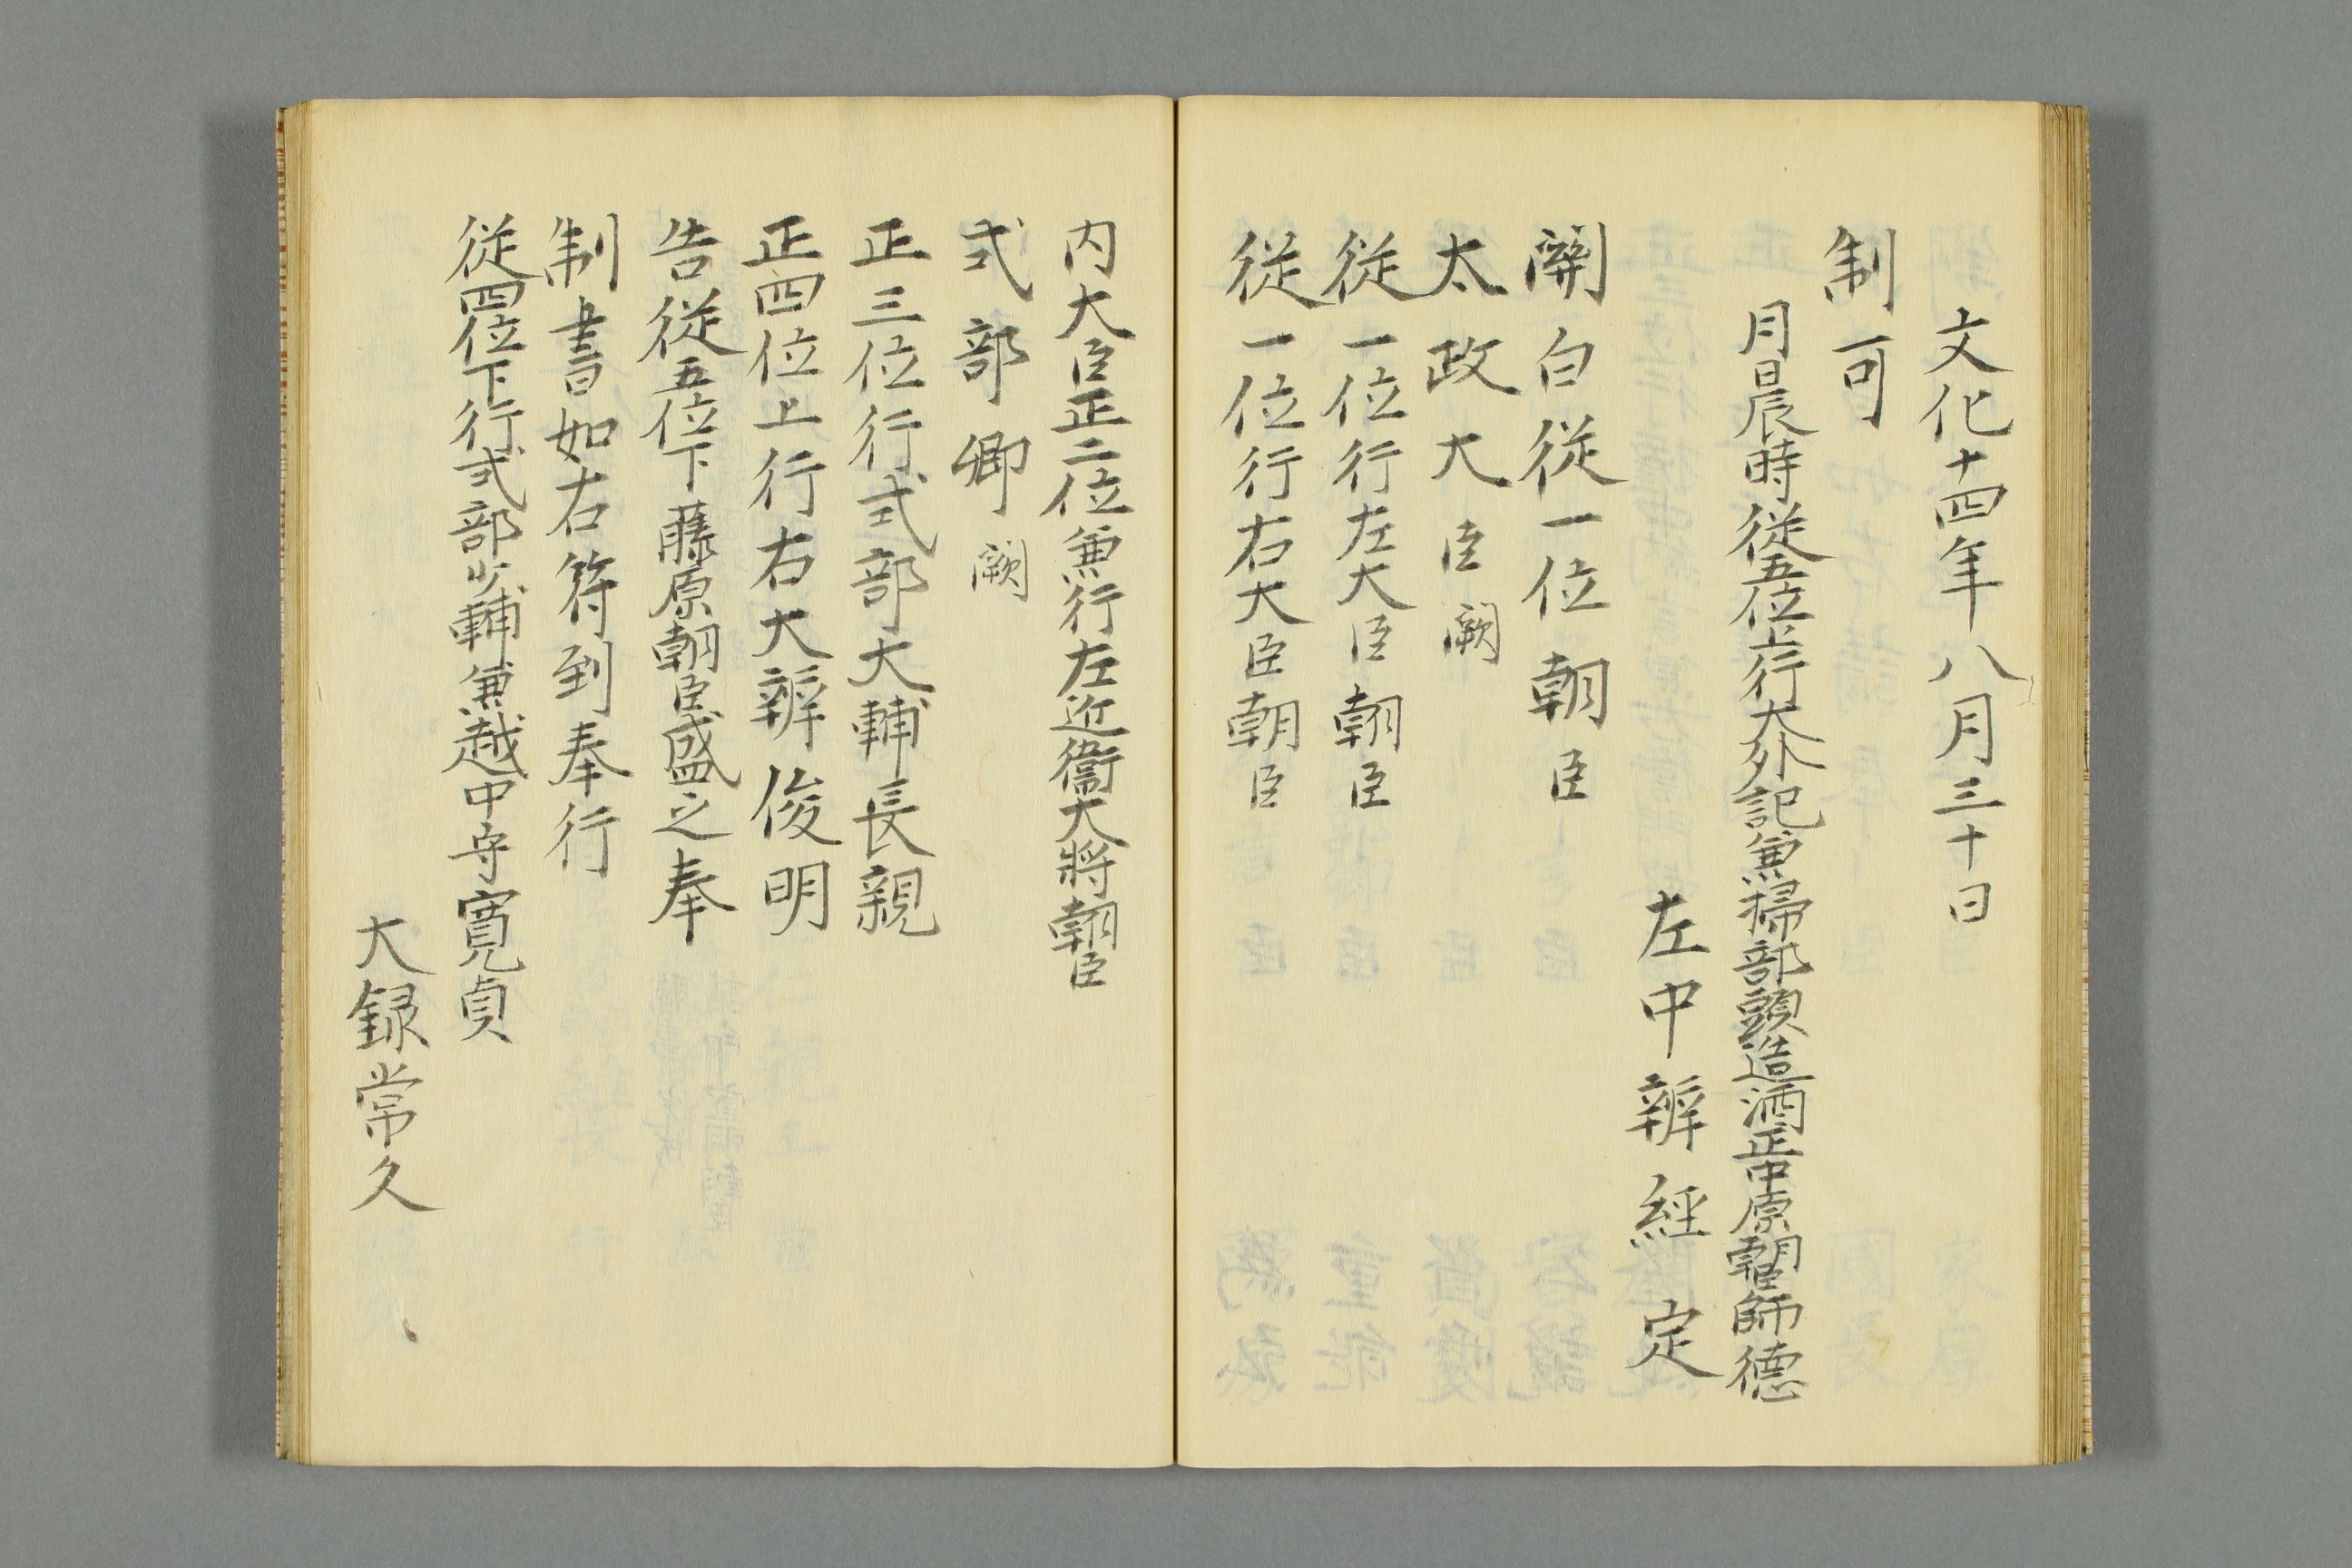 文化十四年八月三十日
制可
月日辰時従五位上行大外記兼掃部頭造酒正中原朝臣師徳
左中辨経定
關白従一位朝臣
太政大臣闕
従一位行左大臣朝臣
従一位行右大臣朝臣
内大臣正二位兼行左近衛大将朝臣
式部卿闕
正三位行式部大輔長親
正四位上行右大辨俊明
告従五位下藤原朝臣盛之奉
制書如右符到奉行
従四位下行式部少輔兼越中守寛貞
大録常久